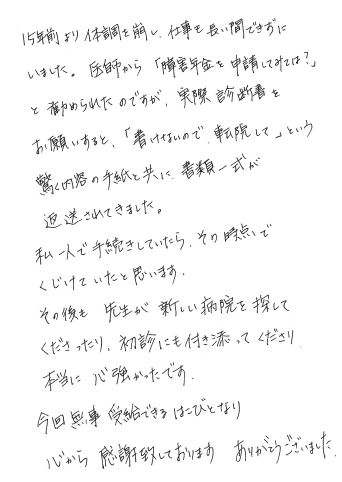 15年前より体調を崩し、仕事を長い間できずに
いました。医師から「障害年金を申請してみては？」
と勧められたのですが、実際診断書を
お願いすると、「書けないので、転院して」という
驚く内容の手紙と共に、書類一式が
返送されてきました。
私一人で手続きしていたら、その時点で
くじけていたと思います。
その後も 先生が新しい病院を探して
くださったり、初診にも付き添ってくださり、
本当に 心強かったです。
今回無事受給できるはこびとなり
心から 感謝致しております ありがとうございました。